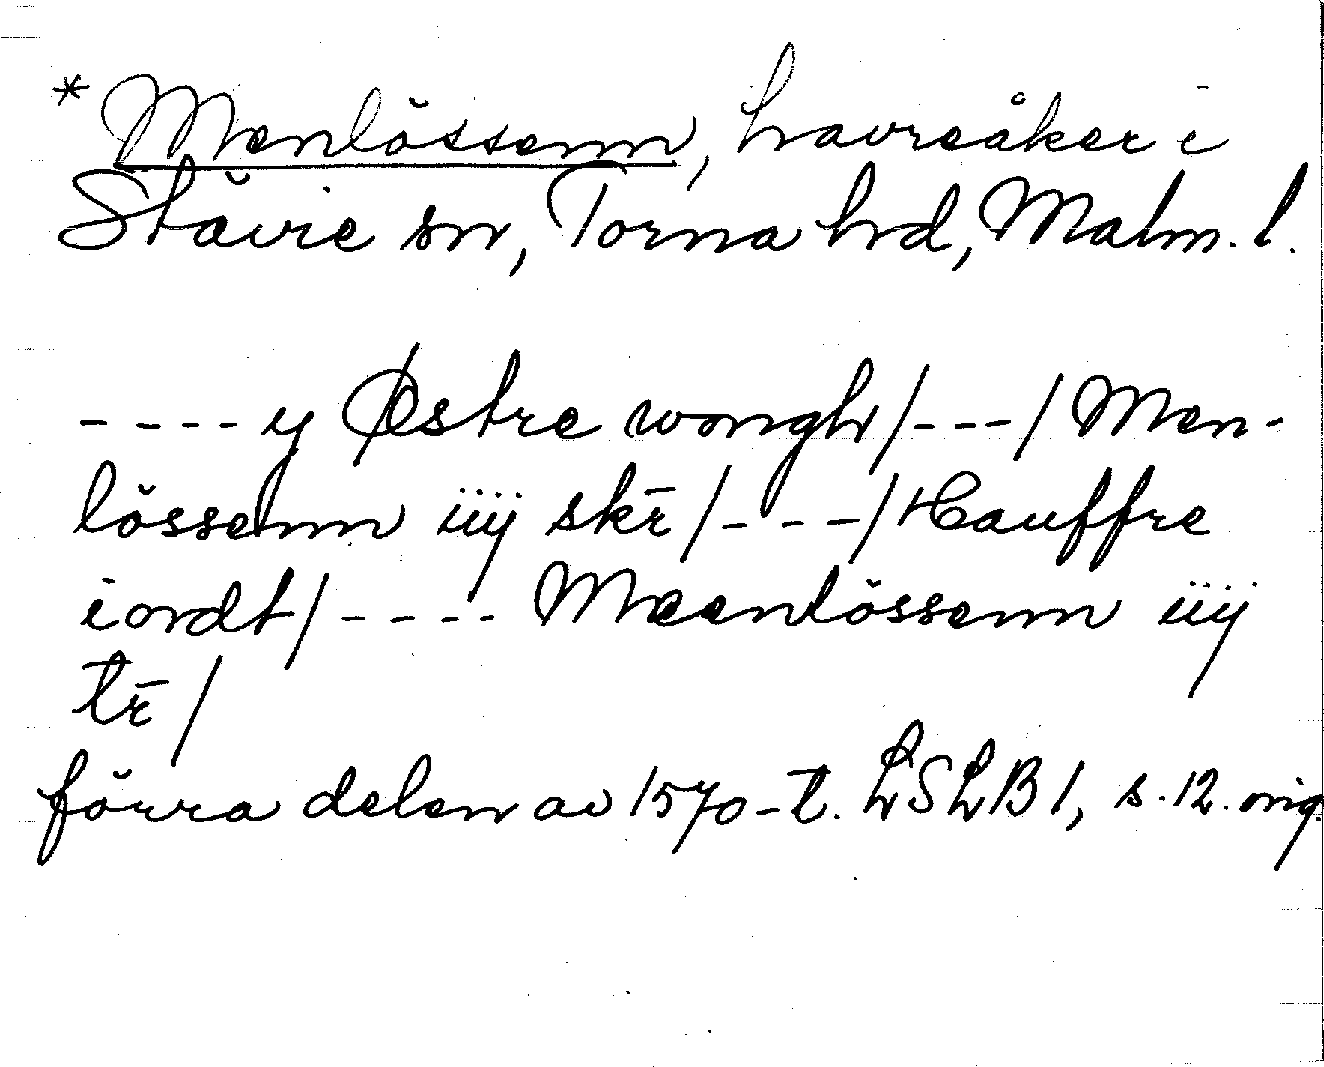 * Menlössenn, havreåker i
Stävie sn, Torna hd, Malm. l.
- - - - y Østre wongh/---/ Men-
lössenn iiij skē /---/ Hauffre
iordt/ - - - - Meenlössenn iiij
trē /
förra delen av 1570-t. LSLB 1, s. 12. orig.